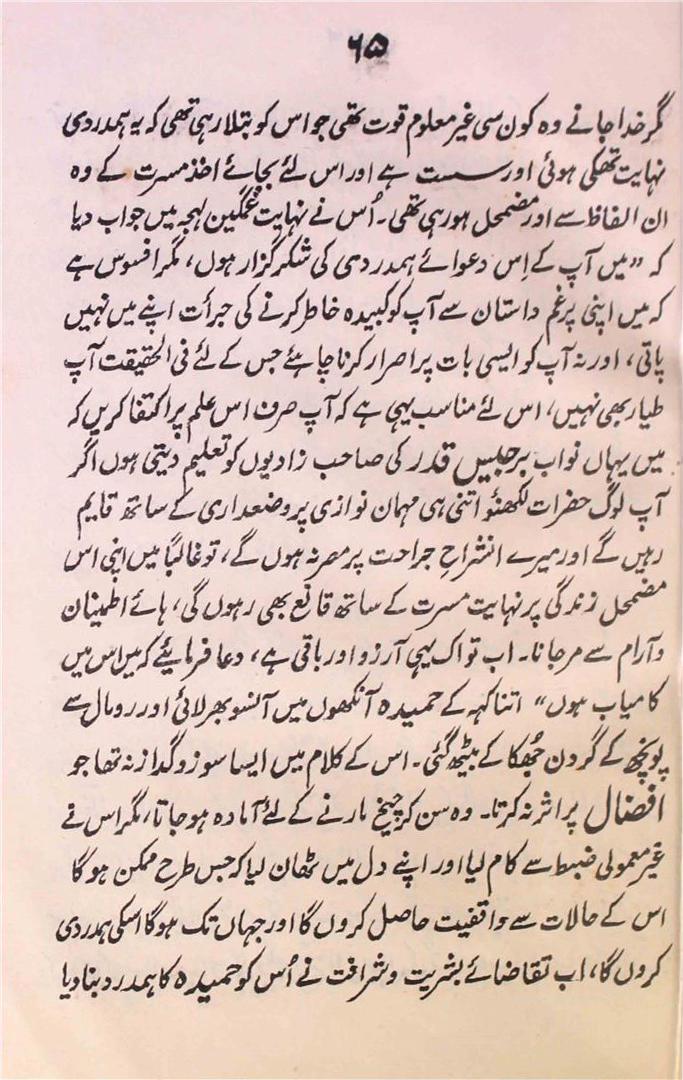 ۶۵
مگر خدا جانے وہ کون سی غیر معلوم قوت تھی جو اس کو بتلا رہی تھی کہ یہ ہمدردی
نہایت تھکی ہوئی اور سست ہے اور اس لئے بجائے اخذ مسرت کے وہ
ان الفاظ سے اور مضمحل ہو رہی تھی۔ اُس نے نہایت غمگین لہجہ میں جواب دیا
کہ "میں آپ کے اِس دعوائے ہمدردی کی شکر گزار ہوں، مگر افسوس ہے
کہ میں اپنی پرغم داستان سے آپ کو کبیدہ خاطر کرنے کی جرأت اپنے میں نہیں
پاتی، اور نہ آپ کو ایسی بات پر اصرار کرنا چاہئے جس کے لئے فی الحقیقت آپ
طیار بھی نہیں، اس لئے مناسب یہی ہے کہ آپ صرف اس علم پر اکتفا کریں کہ
میں یہاں نواب برجیس قدر کی صاحب زادیوں کو تعلیم دیتی ہوں اگر
آپ لوگ حضرات لکھنؤ اتنی ہی مہمان نوازی پر وضعداری کے ساتھ قایم
رہیں گے اور میرے انشراحِ جراحت پر مصر نہ ہوں گے، تو غالباً میں اپنی اس
مضمحل زندگی پر نہایت مسرت کے ساتھ قانع بھی رہوں گی، ہائے اطمینان
و آرام سے مر جانا۔ اب تو اک یہی آرزو اور باقی ہے، دعا فرمایئے کہ میں اس میں
کامیاب ہوں" اتنا کہہ کے حمیدہ آنکھوں میں آنسو بھر لائی اور رومال سے
پونچھ کے گردن جُھکا کے بیٹھ گئی۔ اس کے کلام میں ایسا سوز و گداز نہ تھا جو
افضال پر اثر نہ کرتا۔ وہ سن کر چیخ مارنے کے لئے آمادہ ہو جاتا، مگر اس نے
غیر معمولی ضبط سے کام لیا اور اپنے دل میں ٹھان لیا کہ جس طرح ممکن ہو گا
اس کے حالات سے واقفیت حاصل کروں گا اور جہاں تک ہو گا اسکی ہمدردی
کروں گا، اب تقاضائے بشریت و شرافت نے اُس کو حمیدہ کا ہمدرد بنا دیا